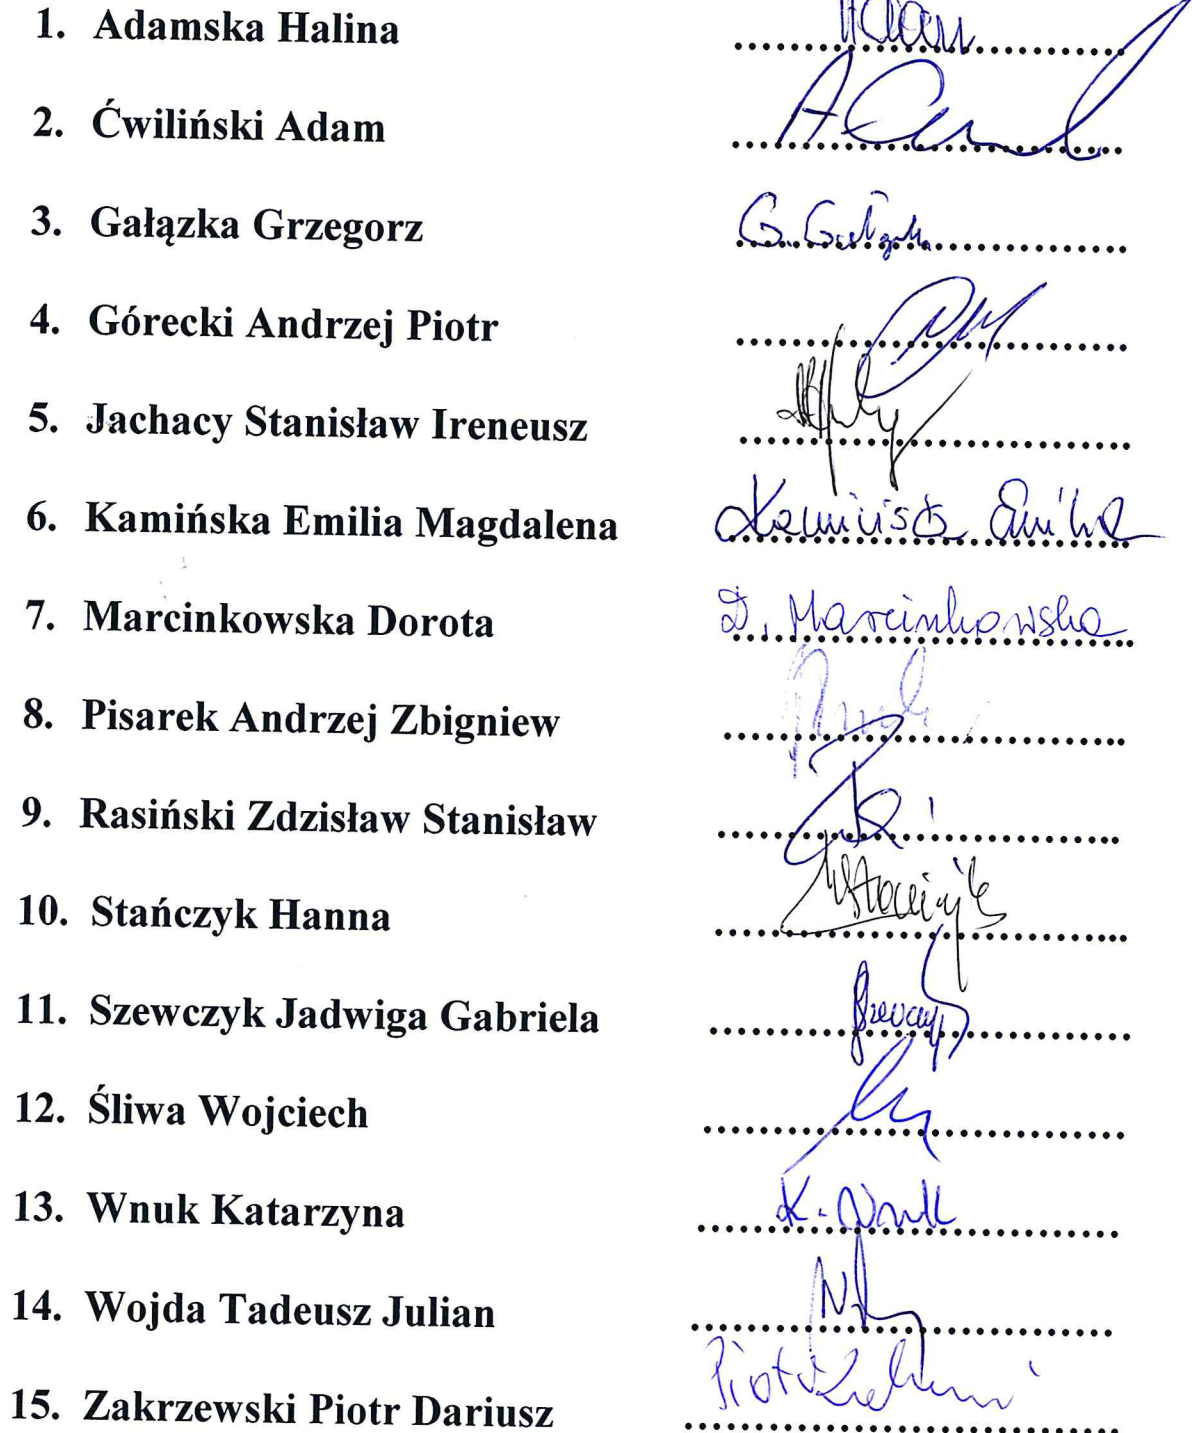 1. Adamska Halina
2. Ćwiliński Adam
3. Gałązka Grzegorz G. Gałązka
4. Górecki Andrzej Piotr
5. Jachacy Stanisław Ireneusz
6. Kamińska Emilia Magdalena Kamińska Emilia
7. Marcinkowska Dorota D. Marcinkowska
8. Pisarek Andrzej Zbigniew
9. Rasiński Zdzisław Stanisław
10. Stańczyk Hanna
11. Szewczyk Jadwiga Gabriela
12. Śliwa Wojciech
13. Wnuk Katarzyna K. Wnuk
14. Wojda Tadeusz Julian
15. Zakrzewski Piotr Dariusz Piotr